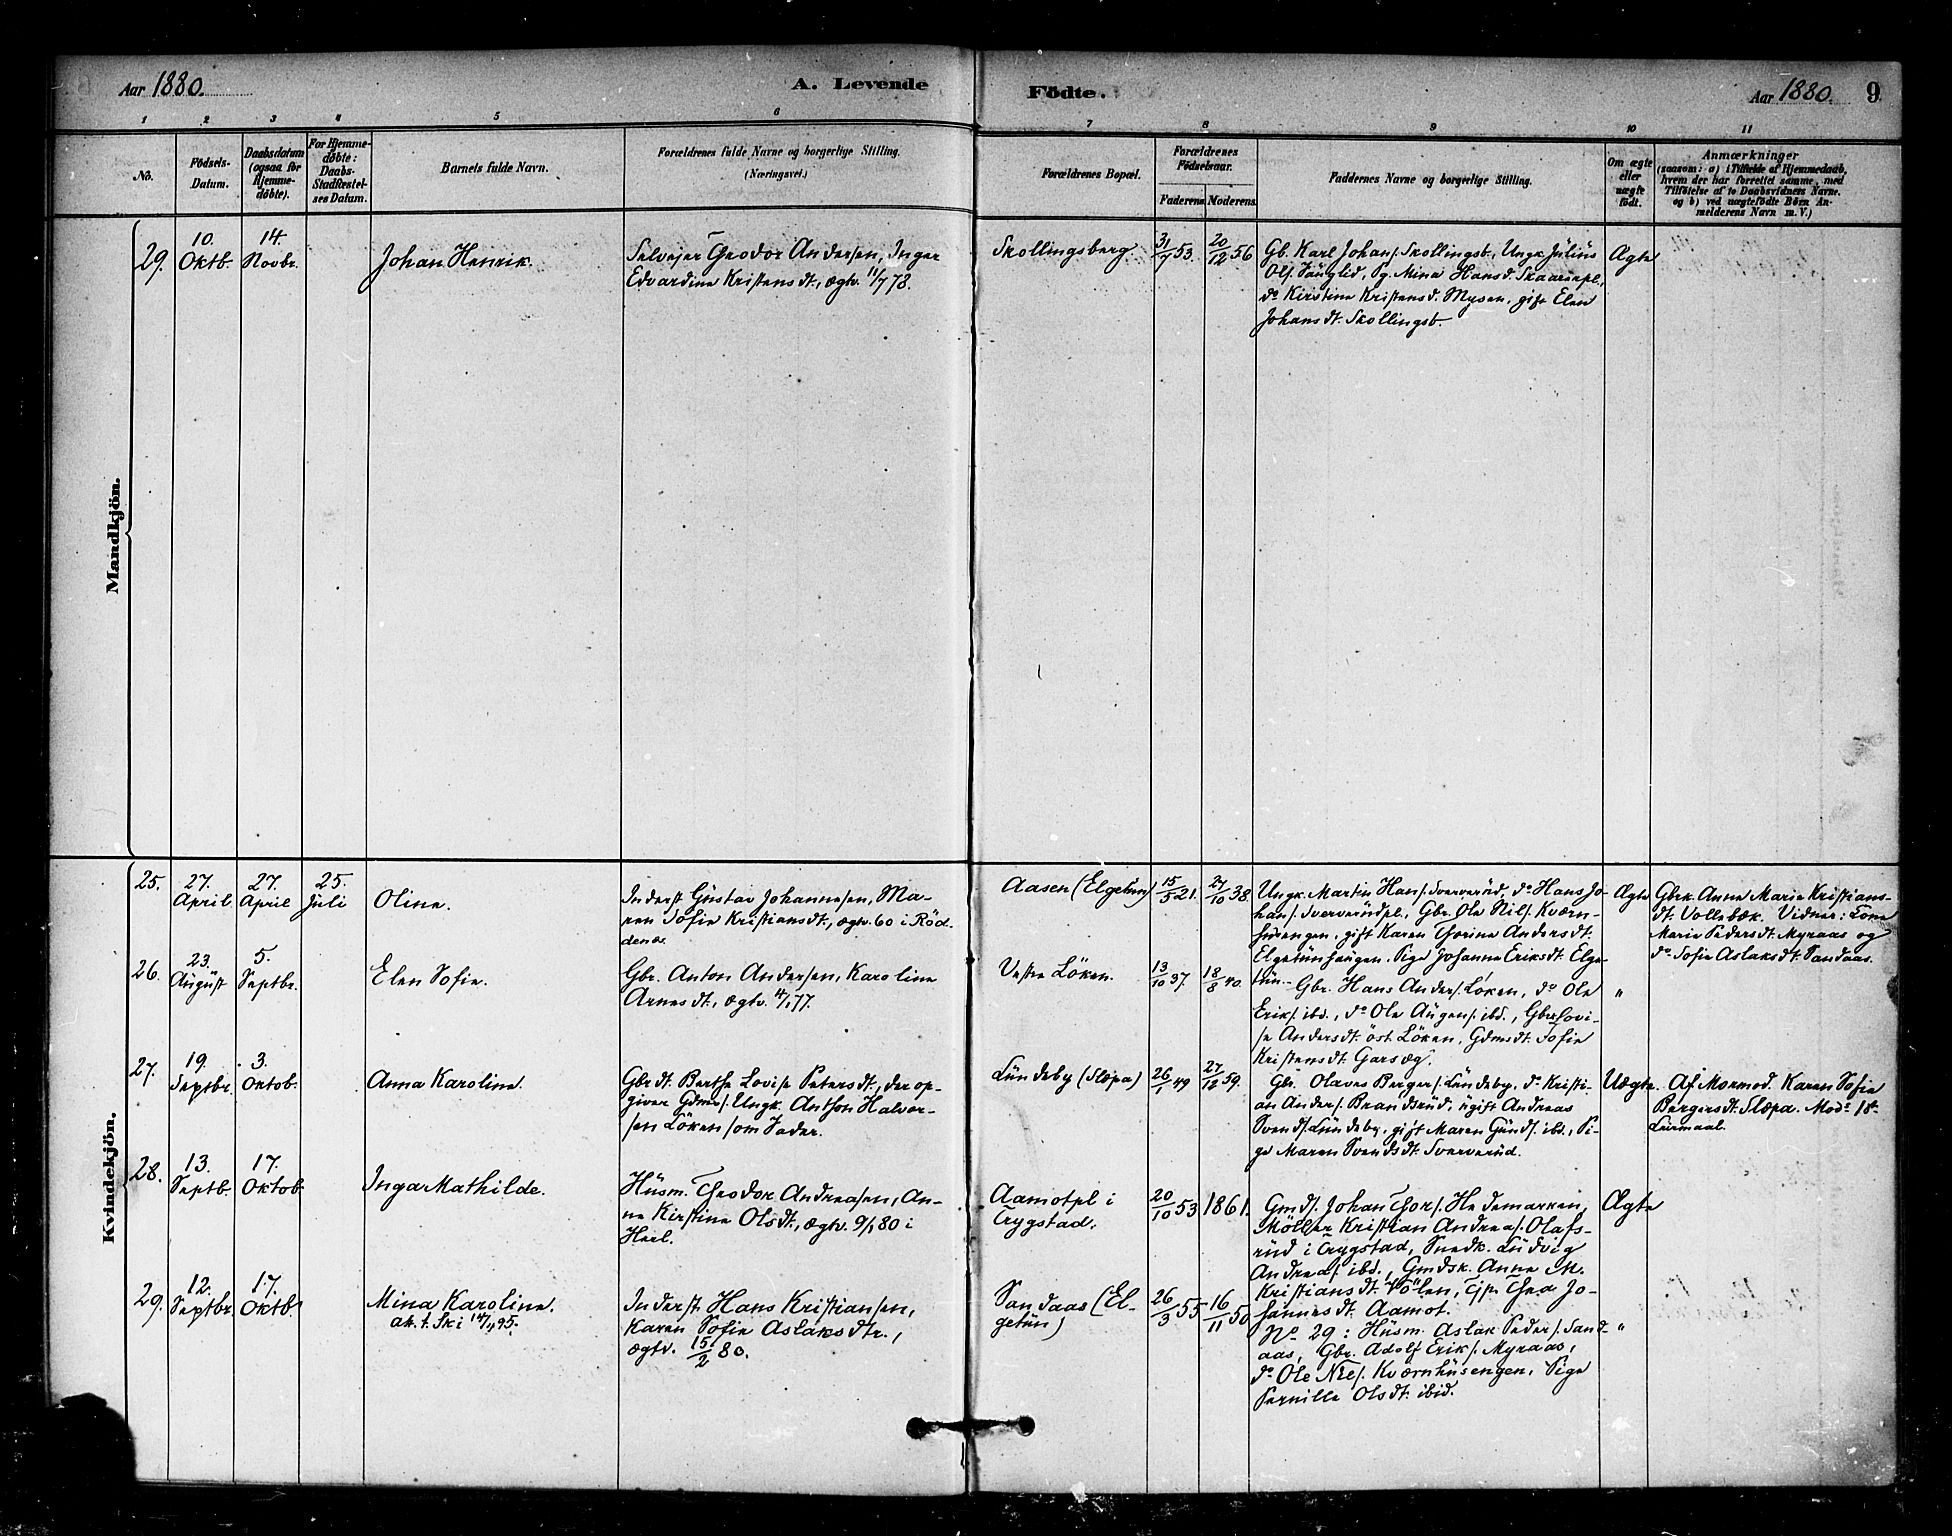 Aar 1880.
A. Levende
Födte.
Aar 1880. 9
1 2 3 4 5 6 7 8 9 10 11
No.
Födsels-
Datum.
Daabsdatum
(ogsaa for
Hjemme-
döbte).
For Hjemme-
döbte:
Daabs-
Stadfæstel-
ses Datum.
Barnets fulde Navn.
Forældrenes fulde Navne og borgerlige Stilling.
(Næringsvei.)
Forældrenes Bopæl.
Forældrenes
Födselsaar.
Faderens Moderens
Faddernes Navne og borgerlige Stilling.
Om ægte
eller
uægte
födt.
Anmærkninger
(saasom: a) i Tilfælde af Hjemmedaab,
hvem der har forrettet samme, med
Tilföielse af to Daabsvidners Navne.
og b) ved uægtefödte Börn An-
melderens Navn m. V.)
Mandkjön.
29.
10.
Oktb.
14.
Novbr.
Johan Henrik.
Selvejer Theodor Andersen, Inger
Edvardine Kristensdt., ægtv. 11/7 78.
Skollingsberg
31/7 53.
20/12 56
Gb. Karl Johans. Skollingsb., Ungk Julius
Ols. , Pg. Mina Hansd. Skaarenpl.,
do Kirstine Kristensd. Mysen, gift Elen
Johansdt. Skollingsb.
Ægte
Kvindekjön.
25.
27.
April
27.
April
25.
Juli
Oline.
Inderst Gustav Johannesen, Ma-
ren Sofie Kristiansdt., ægtv. 60 i Röd-
denes.
Aasen (Elgetun)
15/5 21.
27/10 38.
Ungk. Martin Hans. Sververud, do Hans Jo-
hans. Sververudpl., Gbr. Ole Nils. Kværn-
husengen, gift Karen Thorine Andersdt.
Elgetunhaugen. Pige Johanne Eriksdt. Elge-
tun.
Ægte
Gbrk. Anne Marie Kristians-
dt. Vollebæk. Vidner: Lone
Marie Pedersdt. Myraas og
do Sofie Aslaksdt. Sandaas.
26.
23.
August
5.
Septbr.
Elen Sofie.
Gbr. Anton Andersen, Karoline
Arnesdt., ægtv. 4/1 77.
Vestre Löken.
13/10 37.
18/8 40.
Gbr. Hans Anders. Löken, do Ole
Eriks. ibd., do Ole Augens. ibd., Gbrk Lovi-
se Andersdt. öst Löken, Gdmsdt. Sofie
Kristensdt. Garseg.
"
27.
19.
Septbr.
3.
Oktob.
Anna Karoline.
Gbrdt. Berthe Lovise Petersdt., der op-
giver Gdms. Ungk. Anthon Halvor-
sen Löken som Fader.
Lundeby (Slæpa)
26/1 49
27/12 59.
Gbr. Olaves Bergers. Lundeby, do Kristi-
an Anders. Brandsrud, ugift Andreas
Svends. Lundeby, gift Maren Gunds. ibd., Pi-
ge Maren Svendsdt. Sververud.
Uægte.
Af Mormod. Karen Sofie
Bergersdt. Slæpa. Mods 1ste
Leirmaal.
28.
13.
Septb.
17.
Oktob.
Inga Mathilde.
Husm. Theodor Andreasen, An-
ne Kirstine Olsdt., ægtv. 9/1 80 i
Heil.
Aamotpl i
Trygstad.
20/10 53
1861.
Gmds. Johan Thors. Hedemarken,
Möller Kristian Andreas. Olafs-
rud i Trygstad, Snedk. Ludvig
Andreas. ibd., Gmdsk. Anne M.
Kristiansdt. Pölen, Tjp. Thea Jo-
hannesdt. Aamot.
Ægte
29.
12.
Septbr.
17.
Oktb.
Mina Karoline.
at. t. Ski 14/1 95.
Inderst. Hans Kristiansen,
Karen Sofie Aslaksdtr.,
ægtv. 15/2 80.
Sandaas (El-
getun)
26/3 55
16/11 50
No 29: Husm. Aslak Peders. Sand-
aas, Gbr. Adolf Eriks. Myraas,
do Ole Nils. Kværnhusengen, Pige
Pernille Olsdt. ibid.
"